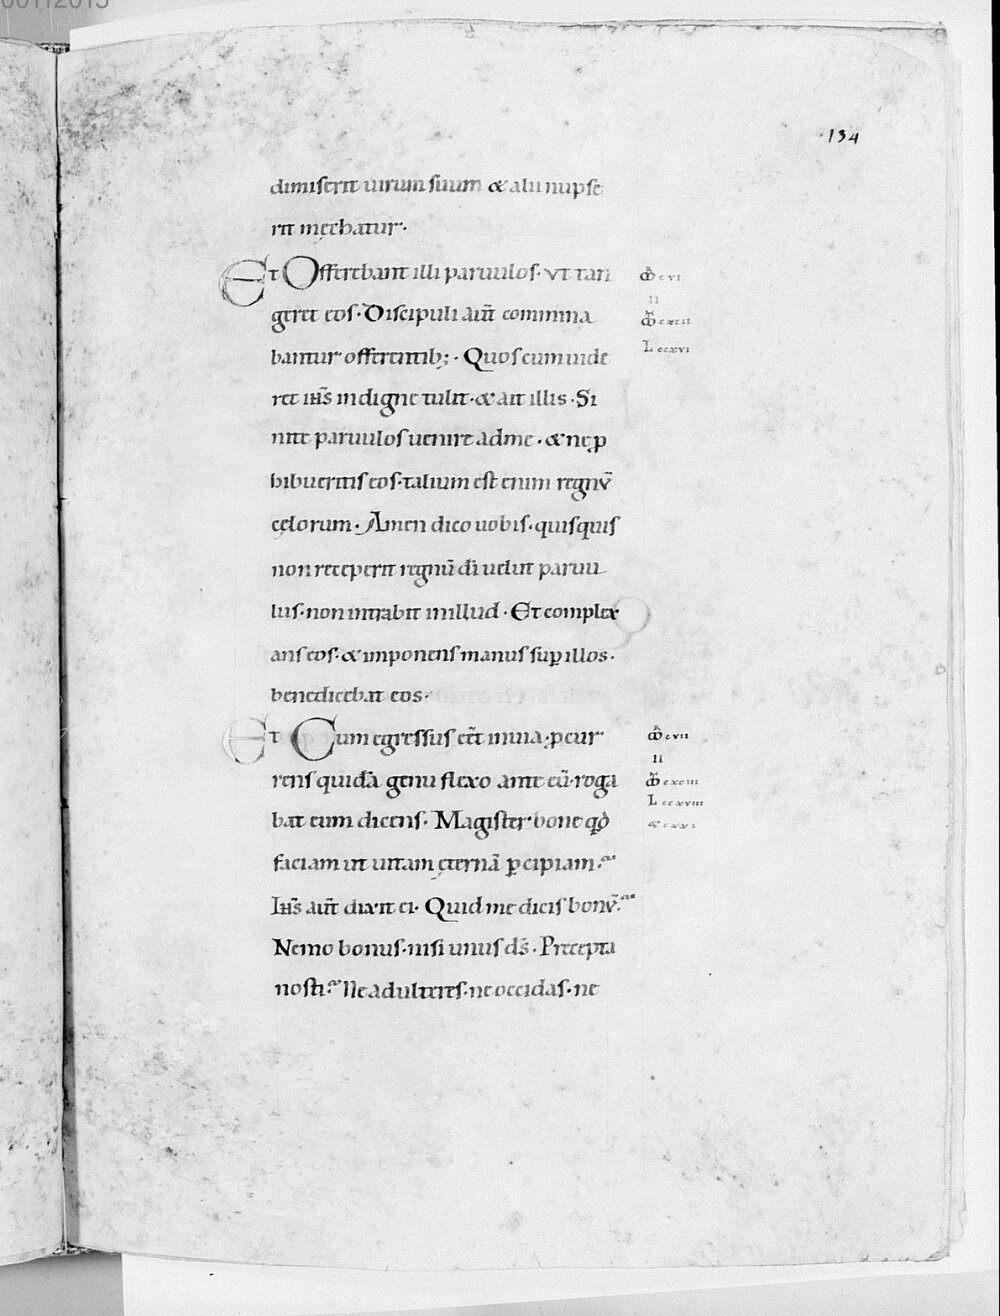 134
dimiserit uirum suum & alii nupse
rit męchatur·
Et Offerebant illi paruulos· vt tan
geret eos· Discipuli aut̄ commina
bantur offerentib;· Quos cum uide
ret ih̄s indigne tulit· & ait illis· Si
nite paruulos uenire adme· & ne ꝓ
hibueritis eos· talium est enim regnv̄
cęlorum· Amen dico uobis· quisquis
non receperit regnū dī uelut paruu
lus· non intrabit inillud· Et complex
ans eos· & imponens manus suꝑ illos·
benedicebat eos·
Et Cum egressus eēt inuia· ꝓcur
rens quidā genu flexo ante eū· roga
bat eum dicens· Magister bone qd̄
faciam ut uitam ęternā ꝑcipiam·
Ih̄s aut̄ dixit ei· Quid me dicis bonv̄·
Nemo bonus· nisi unus d̄s· Precepta
nosti· Ne adulteres· ne occidas· ne
cvi
II
cxcii
L ccxvi
cvii
II
cxciii
L ccxviii